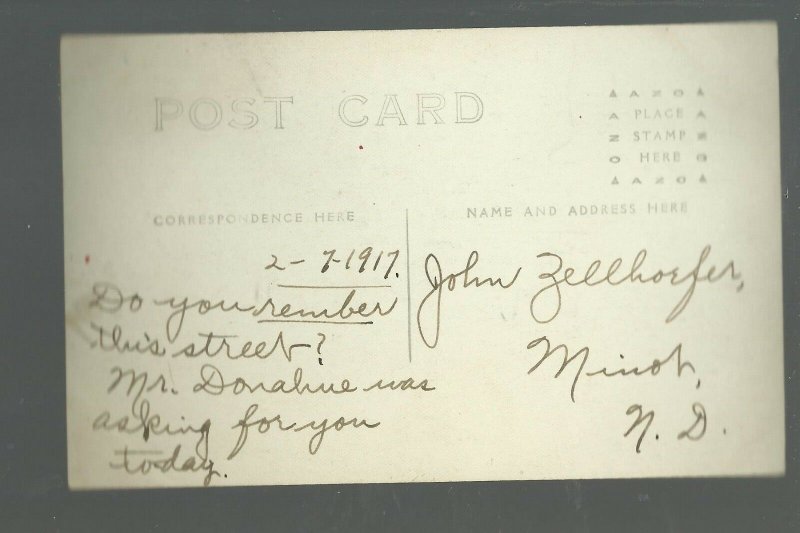 POST CARD
AZO
PLACE
STAMP
HERE
AZO
CORRESPONDENCE HERE
NAME AND ADDRESS HERE
2-7-1917.
Do you rember
this street?
Mr. Donahue was
asking for you
today.
John Zellhoefer,
Minot,
N. D.